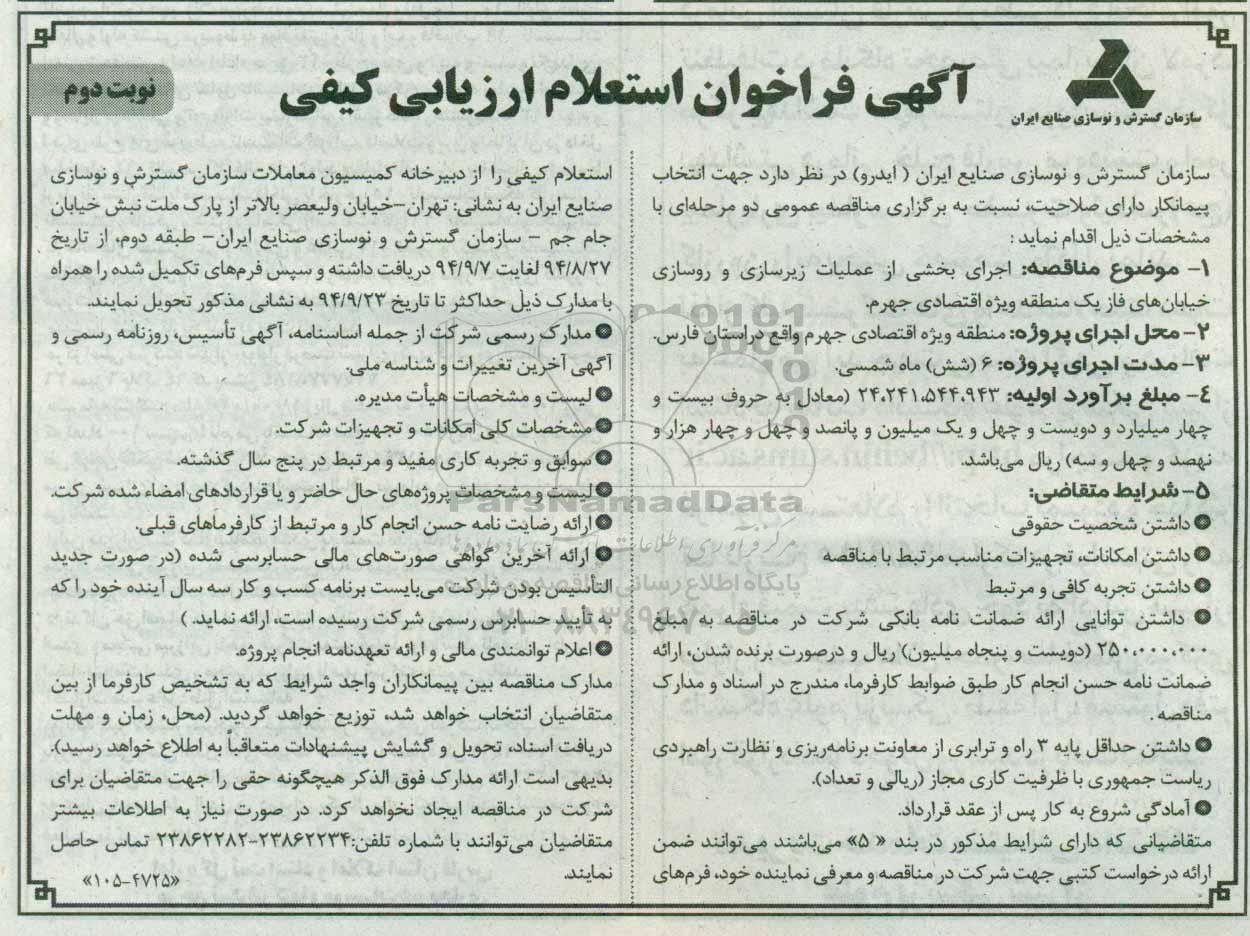 سازمان گسترش و نوسازی صنایع ایران
آگهی فراخوان استعلام ارزیابی کیفی
نوبت دوم
سازمان گسترش و نوسازی صنایع ایران ( ایدرو) در نظر دارد جهت انتخاب
پیمانکار دارای صلاحیت، نسبت به برگزاری مناقصه عمومی دو مرحله‌ای با
مشخصات ذیل اقدام نماید :
۱- موضوع مناقصه: اجرای بخشی از عملیات زیرسازی و روسازی
خیابان‌های فاز یک منطقه ویژه اقتصادی جهرم.
۲- محل اجرای پروژه: منطقه ویژه اقتصادی جهرم واقع در استان فارس.
۳- مدت اجرای پروژه: ۶ (شش) ماه شمسی.
۴- مبلغ برآورد اولیه: ۲۴،۲۴۱،۵۴۴،۹۴۳ (معادل به حروف بیست و
چهار میلیارد و دویست و چهل و یک میلیون و پانصد و چهل و چهار هزار و
نهصد و چهل و سه) ریال می‌باشد.
۵- شرایط متقاضی:
● داشتن شخصیت حقوقی
● داشتن امکانات، تجهیزات مناسب مرتبط با مناقصه
● داشتن تجربه کافی و مرتبط
● داشتن توانایی ارائه ضمانت نامه بانکی شرکت در مناقصه به مبلغ
۲۵۰،۰۰۰،۰۰۰ (دویست و پنجاه میلیون) ریال و درصورت برنده شدن، ارائه
ضمانت نامه حسن انجام کار طبق ضوابط کارفرما، مندرج در اسناد و مدارک
مناقصه .
● داشتن حداقل پایه ۳ راه و ترابری از معاونت برنامه‌ریزی و نظارت راهبردی
ریاست جمهوری با ظرفیت کاری مجاز (ریالی و تعداد).
● آمادگی شروع به کار پس از عقد قرارداد.
متقاضیانی که دارای شرایط مذکور در بند « ۵» می‌باشند می‌توانند ضمن
ارائه درخواست کتبی جهت شرکت در مناقصه و معرفی نماینده خود، فرم‌های
استعلام کیفی را از دبیرخانه کمیسیون معاملات سازمان گسترش و نوسازی
صنایع ایران به نشانی: تهران-خیابان ولیعصر بالاتر از پارک ملت نبش خیابان
جام جم - سازمان گسترش و نوسازی صنایع ایران- طبقه دوم، از تاریخ
۹۴/۸/۲۷ لغایت ۹۴/۹/۷ دریافت داشته و سپس فرم‌های تکمیل شده را همراه
با مدارک ذیل حداکثر تا تاریخ ۹۴/۹/۲۳ به نشانی مذکور تحویل نمایند.
● مدارک رسمی شرکت از جمله اساسنامه، آگهی تأسیس، روزنامه رسمی و
آگهی آخرین تغییرات و شناسه ملی.
● لیست و مشخصات هیأت مدیره.
● مشخصات کلی امکانات و تجهیزات شرکت.
● سوابق و تجربه کاری مفید و مرتبط در پنج سال گذشته.
● لیست و مشخصات پروژه‌های حال حاضر و یا قراردادهای امضاء شده شرکت.
● ارائه رضایت نامه حسن انجام کار و مرتبط از کارفرماهای قبلی.
● ارائه آخرین گواهی صورت‌های مالی حسابرسی شده (در صورت جدید
التأسیس بودن شرکت می‌بایست برنامه کسب و کار سه سال آینده خود را که
به تأیید حسابرس رسمی شرکت رسیده است، ارائه نماید. )
● اعلام توانمندی مالی و ارائه تعهدنامه انجام پروژه.
مدارک مناقصه بین پیمانکاران واجد شرایط که به تشخیص کارفرما از بین
متقاضیان انتخاب خواهد شد، توزیع خواهد گردید. (محل، زمان و مهلت
دریافت اسناد، تحویل و گشایش پیشنهادات متعاقباً به اطلاع خواهد رسید).
بدیهی است ارائه مدارک فوق الذکر هیچگونه حقی را جهت متقاضیان برای
شرکت در مناقصه ایجاد نخواهد کرد. در صورت نیاز به اطلاعات بیشتر
متقاضیان می‌توانند با شماره تلفن:۲۳۸۶۲۲۳۴-۲۳۸۶۲۲۸۲ تماس حاصل
نمایند.
«۱۰۵-۴۷۲۵»
ParsNamadData